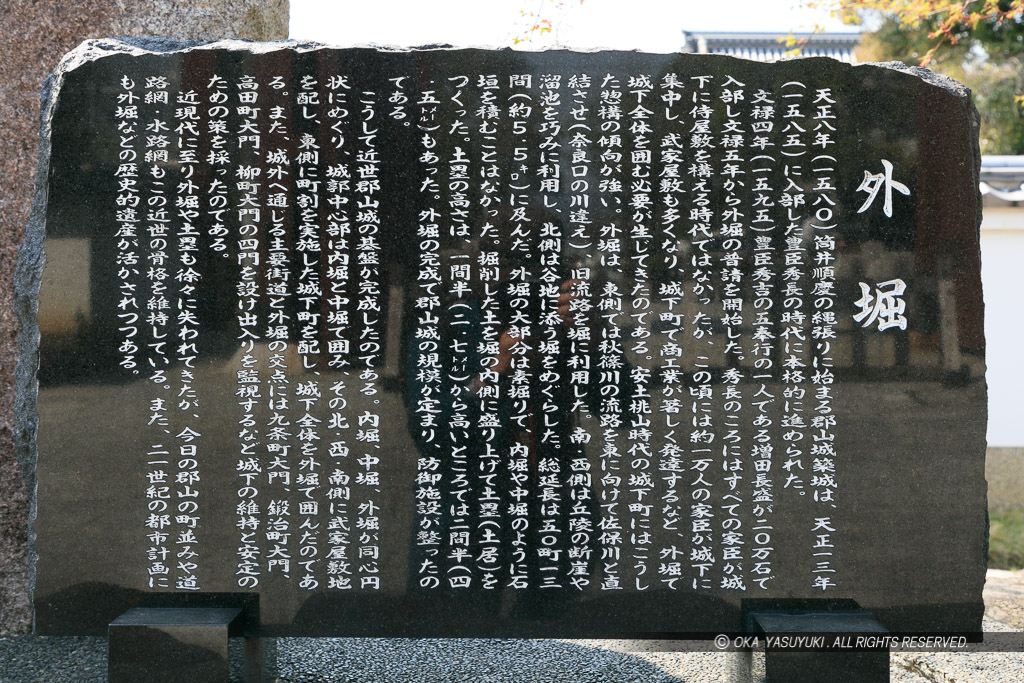 外堀
天正八年（一五八〇）筒井順慶の縄張りに始まる郡山城築城は、天正一三年
（一五八五）に入部した豊臣秀長の時代に本格的に進められた。
文禄四年（一五九五）豊臣秀吉の五奉行の一人である増田長盛が二〇万石で
入部し文禄五年から外堀の普請を開始した。秀長のころにはすべての家臣が城
下に侍屋敷を構える時代ではなかったが、この頃には約一万人の家臣が城下に
集中し、武家屋敷も多くなり、城下町で商工業が著しく発達するなど、外堀で
城下全体を囲む必要が生じてきたのである。安土桃山時代の城下町にはこうし
た惣構の傾向が強い。外堀は、東側では秋篠川の流路を東に向けて佐保川と直
結させ（奈良口の川違え）、旧流路を堀に利用した。南・西側は丘陵の断崖や
溜池を巧みに利用し、北側は谷地に添う堀をめぐらした。総延長は五〇町一三
間（約５.５㌔）に及んだ。外堀の大部分は素堀りで、内堀や中堀のように石
垣を積むことはなかった。掘削した土を堀の内側に盛り上げて土塁（土居）を
つくった。土塁の高さは、一間半（二.七㍍）から高いところでは二間半（四
.五㍍）もあった。外堀の完成で郡山城の規模が定まり、防御施設が整ったの
である。
こうして近世郡山城の基盤が完成したのである。内堀、中堀、外堀が同心円
状にめぐり、城郭中心部は内堀と中堀で囲み、その北・西・南側に武家屋敷地
を配し、東側に町割を実施した城下町を配し、城下全体を外堀で囲んだのであ
る。また、城外へ通じる主要街道と外堀の交点には九条町大門、鍛冶町大門、
高田町大門、柳町大門の四門を設け出入りを監視するなど城下の維持と安定の
ための策を採ったのである。
近現代に至り外堀や土塁も徐々に失われてきたが、今日の郡山の町並みや道
路網・水路網もこの近世の骨格を維持している。また、二一世紀の都市計画に
も外堀などの歴史的遺産が活かされつつある。
© OKA YASUYUKI. ALL RIGHTS RESERVED.